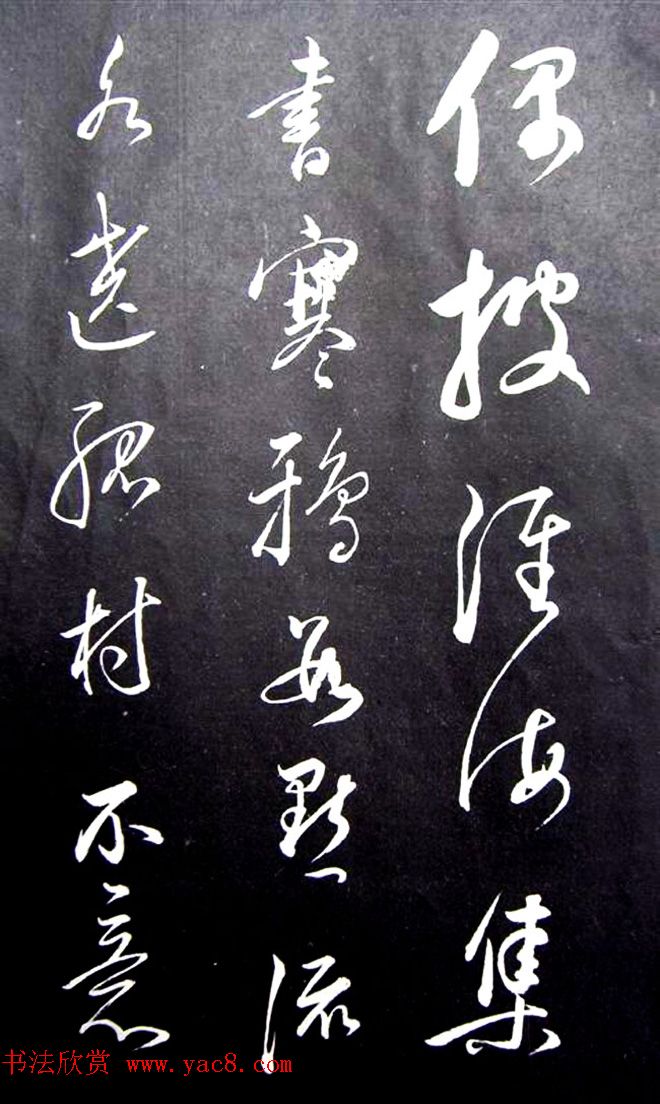 偶披淮海集
書寒鴉數點流
水遶孤村不意
书法欣赏 www.yac8.com